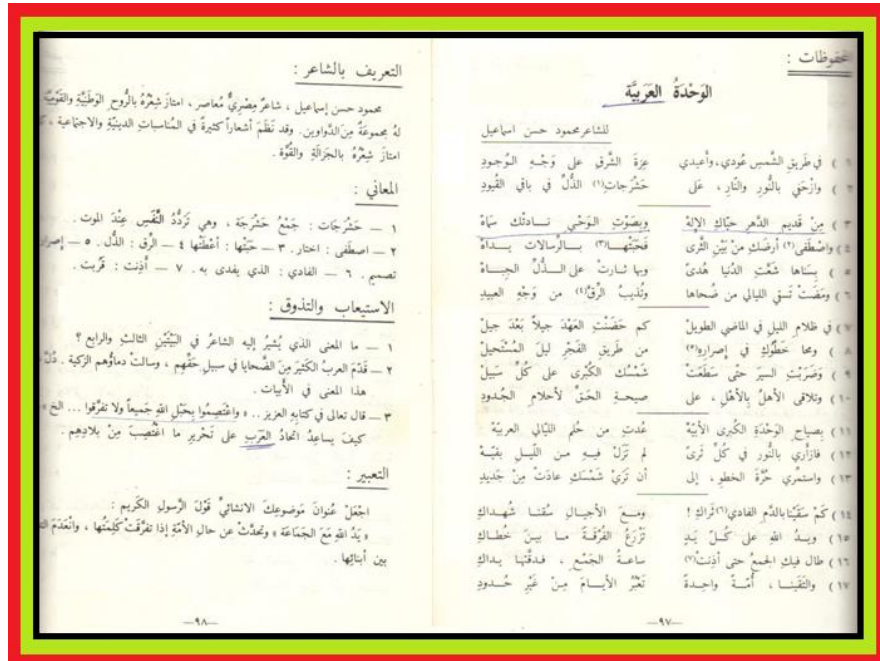 محفوظات :
الوَحْدَةُ العَرَبِيَّة
للشاعر محمود حسن اسماعيل
١ ) في طَريقِ الشَّمسِ عُودي، وأَعيدي عِزةَ الشَّرقِ على وَجْهِ الوُجودِ
٢ ) وازْحَفي بالنُّورِ والنَّارِ ، عَلى حَشْرَجاتِ(١) الذُّلِّ في باقي القُيودِ
٣ ) مِنْ قَديمِ الدَّهرِ حَيَّاكِ الإلهْ وبِصَوْتِ الوَحْيِ نادَتْكِ سَماهْ
٤ ) واصْطَفى(٢) أرضَكِ مِنْ بَيْنِ الثَّرى فَحَبَتْها(٣) بالرِّسالاتِ يَداهْ
٥ ) بِسَناها شَعَّتِ الدُّنيا هُدىً وبها ثارتْ على الذُّلِّ الجِباهْ
٦ ) ومَضَتْ تَسقي الليالي من ضُحاها وتُذيبُ الرِّقَّ(٤) من وَجْهِ العبيدِ
٧ ) في ظلامِ الليلِ في الماضي الطويلْ كم حَضَنْتِ العَهْدَ جيلاً بَعْدَ جيلْ
٨ ) ومحا خَطْوُكِ في إصرارِهِ(٥) من طَريقِ الفَجْرِ ليلَ المُسْتَحيلْ
٩ ) وضَرَبْتِ السيرَ حتّى سَطَعَتْ شَمْسُكِ الكُبْرى على كُلِّ سَبيلْ
١٠ ) وتلاقى الأهلُ بالأهْلِ ، على صيحةِ الحَقِّ لأحلامِ الجُدودِ
١١ ) بصياحِ الوَحْدَةِ الكُبرى الأبيَّهْ عُدتِ من حُلم الليالي العربيّهْ
١٢ ) فازأري بالنُّورِ في كُلِّ ثَرىً لم تَزَلْ فيهِ مِنَ اللَّيلِ بقيّهْ
١٣ ) واستمرّي حُرَّةَ الخطوِ ، إلى أن تَرَيْ شَمْسَكِ عادَتْ مِنْ جَديدِ
١٤ ) كَمْ سَقَيْنا بالدَّمِ الفادي(٦) ثَراكِ ! ومعَ الأجيالِ سُقْنا شُهداكِ
١٥ ) ويدُ اللهِ على كُلِّ يَدٍ تَزْرَعُ الفُرْقَةُ ما بينَ خُطاكِ
١٦ ) طال فيكِ الجمعُ حتى أذِنتْ(٧) ساعةُ الجَمْعِ ، فدقَّتْها يداكِ
١٧ ) والتَقَينا ، أُمّةً واحِدةً تَعْبُرُ الأيامَ مِنْ غَيْرِ حُدودِ
—٩٧—
التعريف بالشاعر :
محمود حسن إسماعيل ، شاعرٌ مِصْرِيٌّ مُعاصر ، امتازَ شِعْرُهُ بالرُّوحِ الوَطَنِيَّةِ والقَوْمِيَّةِ
لهُ مجموعَةٌ مِنَ الدَّواوين. وقد نَظَمَ أشعاراً كثيرةً في المُناسباتِ الدينيّةِ والاجتماعية ،
امتازَ شِعْرُهُ بالجَزالَةِ والقُوَّة .
المعاني :
١ — حَشْرَجات : جَمْعُ حَشْرَجَة ، وهي تَرَدُّدُ النَّفَسِ عِنْدَ الموت .
٢ — اصطَفى : اختار . ٣ — حَبَتْها : أعْطَتْها ٤ — الرِّق : الذُّل . ٥ —
تصميم . ٦ — الفادي : الذي يفدى به . ٧ — أذِنت : قَرُبت .
الاستيعاب والتذوق :
١ — ما المعنى الذي يُشيرُ إليه الشاعرُ في البَيْتَيْنِ الثالثِ والرابع ؟
٢ — قَدَّمَ العربُ الكَثيرَ مِنَ الضَّحايا في سبيلِ حَقِّهم ، وسالتْ دماؤُهم الزكية . دُلَّ
هذا المعنى في الأبيات .
٣ — قال تعالى في كتابِهِ العزيز .. « واعْتَصِمُوا بحَبْلِ اللهِ جَميعاً ولا تفرَّقوا ... الخ »
كيفَ يساعِدُ اتحادُ العَرَبِ على تَحْريرِ ما اغْتُصِبَ مِنْ بلادِهِم .
التعبير :
اجْعَلْ عُنوانَ مَوضوعِكَ الانشائيِّ قَوْلَ الرَّسولِ الكَريم :
« يَدُ اللهِ مَعَ الجَمَاعَة » وتحدَّثْ عن حالِ الأمّةِ إذا تفرَّقَتْ كَلِمَتُها ، وانْعَدَمَ
بين أبنائِها .
—٩٨—